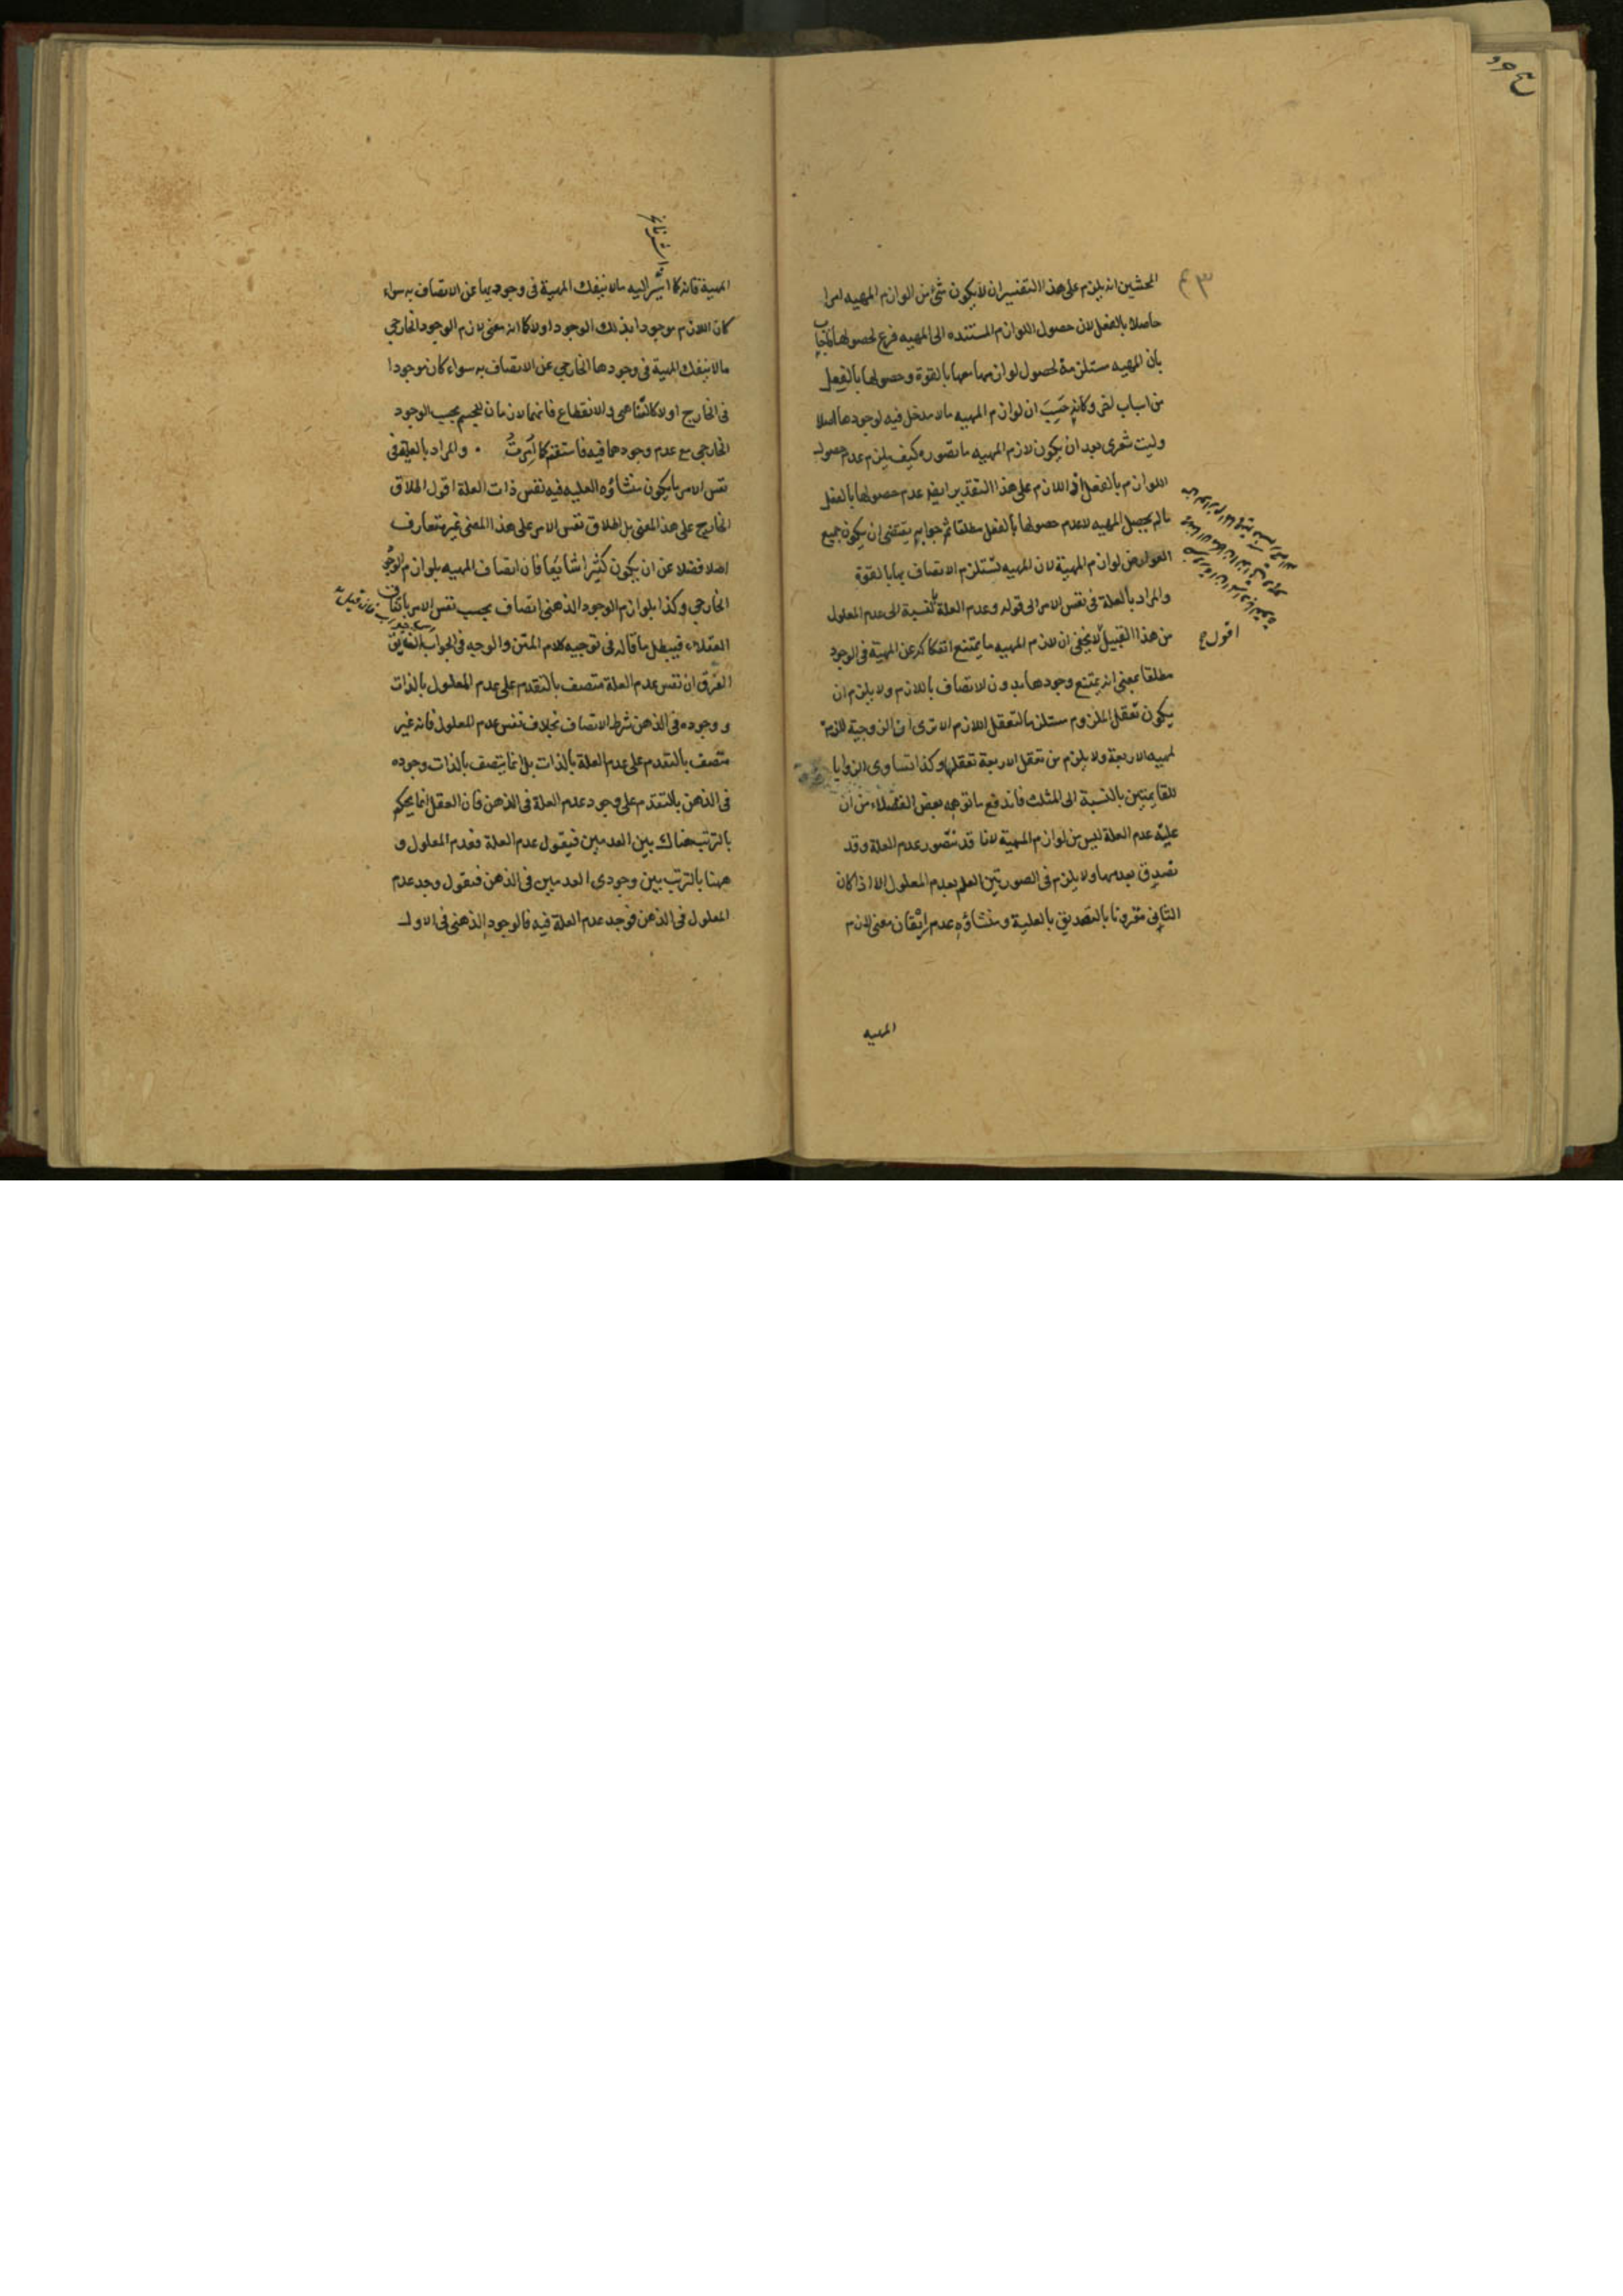 المحشين انه يلزم على هذا التفسير ان لا يكون شئ من الوازم المهيه امرا
حاصلا بالفعل لان حصول اللوازم المستنده الى المهيه فرع لحصولها فاجاب
بان المهيه مستلزمة لحصول لوازمها معها بالقوة وحصولها بالفعل
من اسباب اخر وكانه حسب ان لوازم المهيه مالا مدخل فيه لوجودها اصلا
وليت شعرى بعد ان يكون لازم المهيه ما تصوره كيف يلزم عدم حصول
اللوازم بالفعل اذ اللازم على هذا التقدير ايضا عدم حصولها بالفعل
مالم يحصل المهيه لا عدم حصولها بالفعل مطلقا ثم جوابه يقتضى ان يكون جميع
العوارض لوازم المهية لان المهيه تستلزم الاتصاف بها بالقوة
والمراد بالعلة فى نفس الامر الى قوله وعدم العلة بالنسبة الى عدم المعلول
من هذا القبيل لا يخفى ان لازم المهيه ما يمتنع انفكاكه عن المهية فى الوجود
اقول
مطلقا بمعنى انه يمتنع وجودها بدون الاتصاف باللازم ولا يلزم ان
يكون تعقل الملزوم مستلزما لتعقل اللازم الا ترى ان الزوجية لازمة
لمهيه الاربعة ولا يلزم من تعقل الاربعة تعقلها وكذا تساوى الزوايا
للقايمتين بالنسبة الى المثلث فاندفع ما توهمه بعض الفضلاء من ان
عليّه عدم العلة ليس من لوازم المهية لانا قد نتصور عدم العلة وقد
نصدق بعدمها ولا يلزم فى الصورتين العلم بعدم المعلول الا اذا كان
الثانى مقرونا بالتصديق بالعلية ومنشاؤه عدم اتقان معنى لازم
المهيه
المهية فانه كما اشير اليه مالا ينفك المهية فى وجوديها عن الاتصاف به سواء
كان اللازم موجودا بذلك الوجود اولا كما ان معنى لازم الوجود الخارجى
مالا ينفك المهية فى وجودها الخارجى عن الاتصاف به سواء كان موجودا
فى الخارج اولا كالتناهى والانقطاع فانهما لازمان للجسم بحسب الوجود
الخارجى مع عدم وجودهما فيه فاستقم كما اُمرتَ . والمراد بالعلية فى
نفس الامر ما يكون منشاؤه العليه فيه نفس ذات العلة اقول اطلاق
الخارج على هذا المعنى بل اطلاق نفس الامر على هذا المعنى غير متعارف
اصلا فضلا عن ان يكون كثيرا شايعا فان اتصاف المهيه بلوازم الوجود
الخارجى وكذا بلوازم الوجود الذهنى اتصاف بحسب نفس الامر باتفاق
العقلاء فيبطل ما قاله فى توجيه كلام المتن والوجه فى الجواب
الفرق ان نفس عدم العلة متصف بالتقدم على عدم المعلول بالذات
ووجوده فى الذهن شرط الاتصاف بخلاف نفس عدم المعلول فانه غير
متصف بالتقدم على عدم العلة بالذات بل انما يتصف بالذات وجوده
فى الذهن بالتقدم على وجود عدم العلة فى الذهن فان العقل انما يحكم
بالترتب هناك بين العدمين فيقول عدم العلة فعدم المعلول و
ههنا بالترتب بين وجودى العدمين فى الذهن فيقول وجد عدم
المعلول فى الذهن فوجد عدم العلة فيه فالوجود الذهنى فى الاول